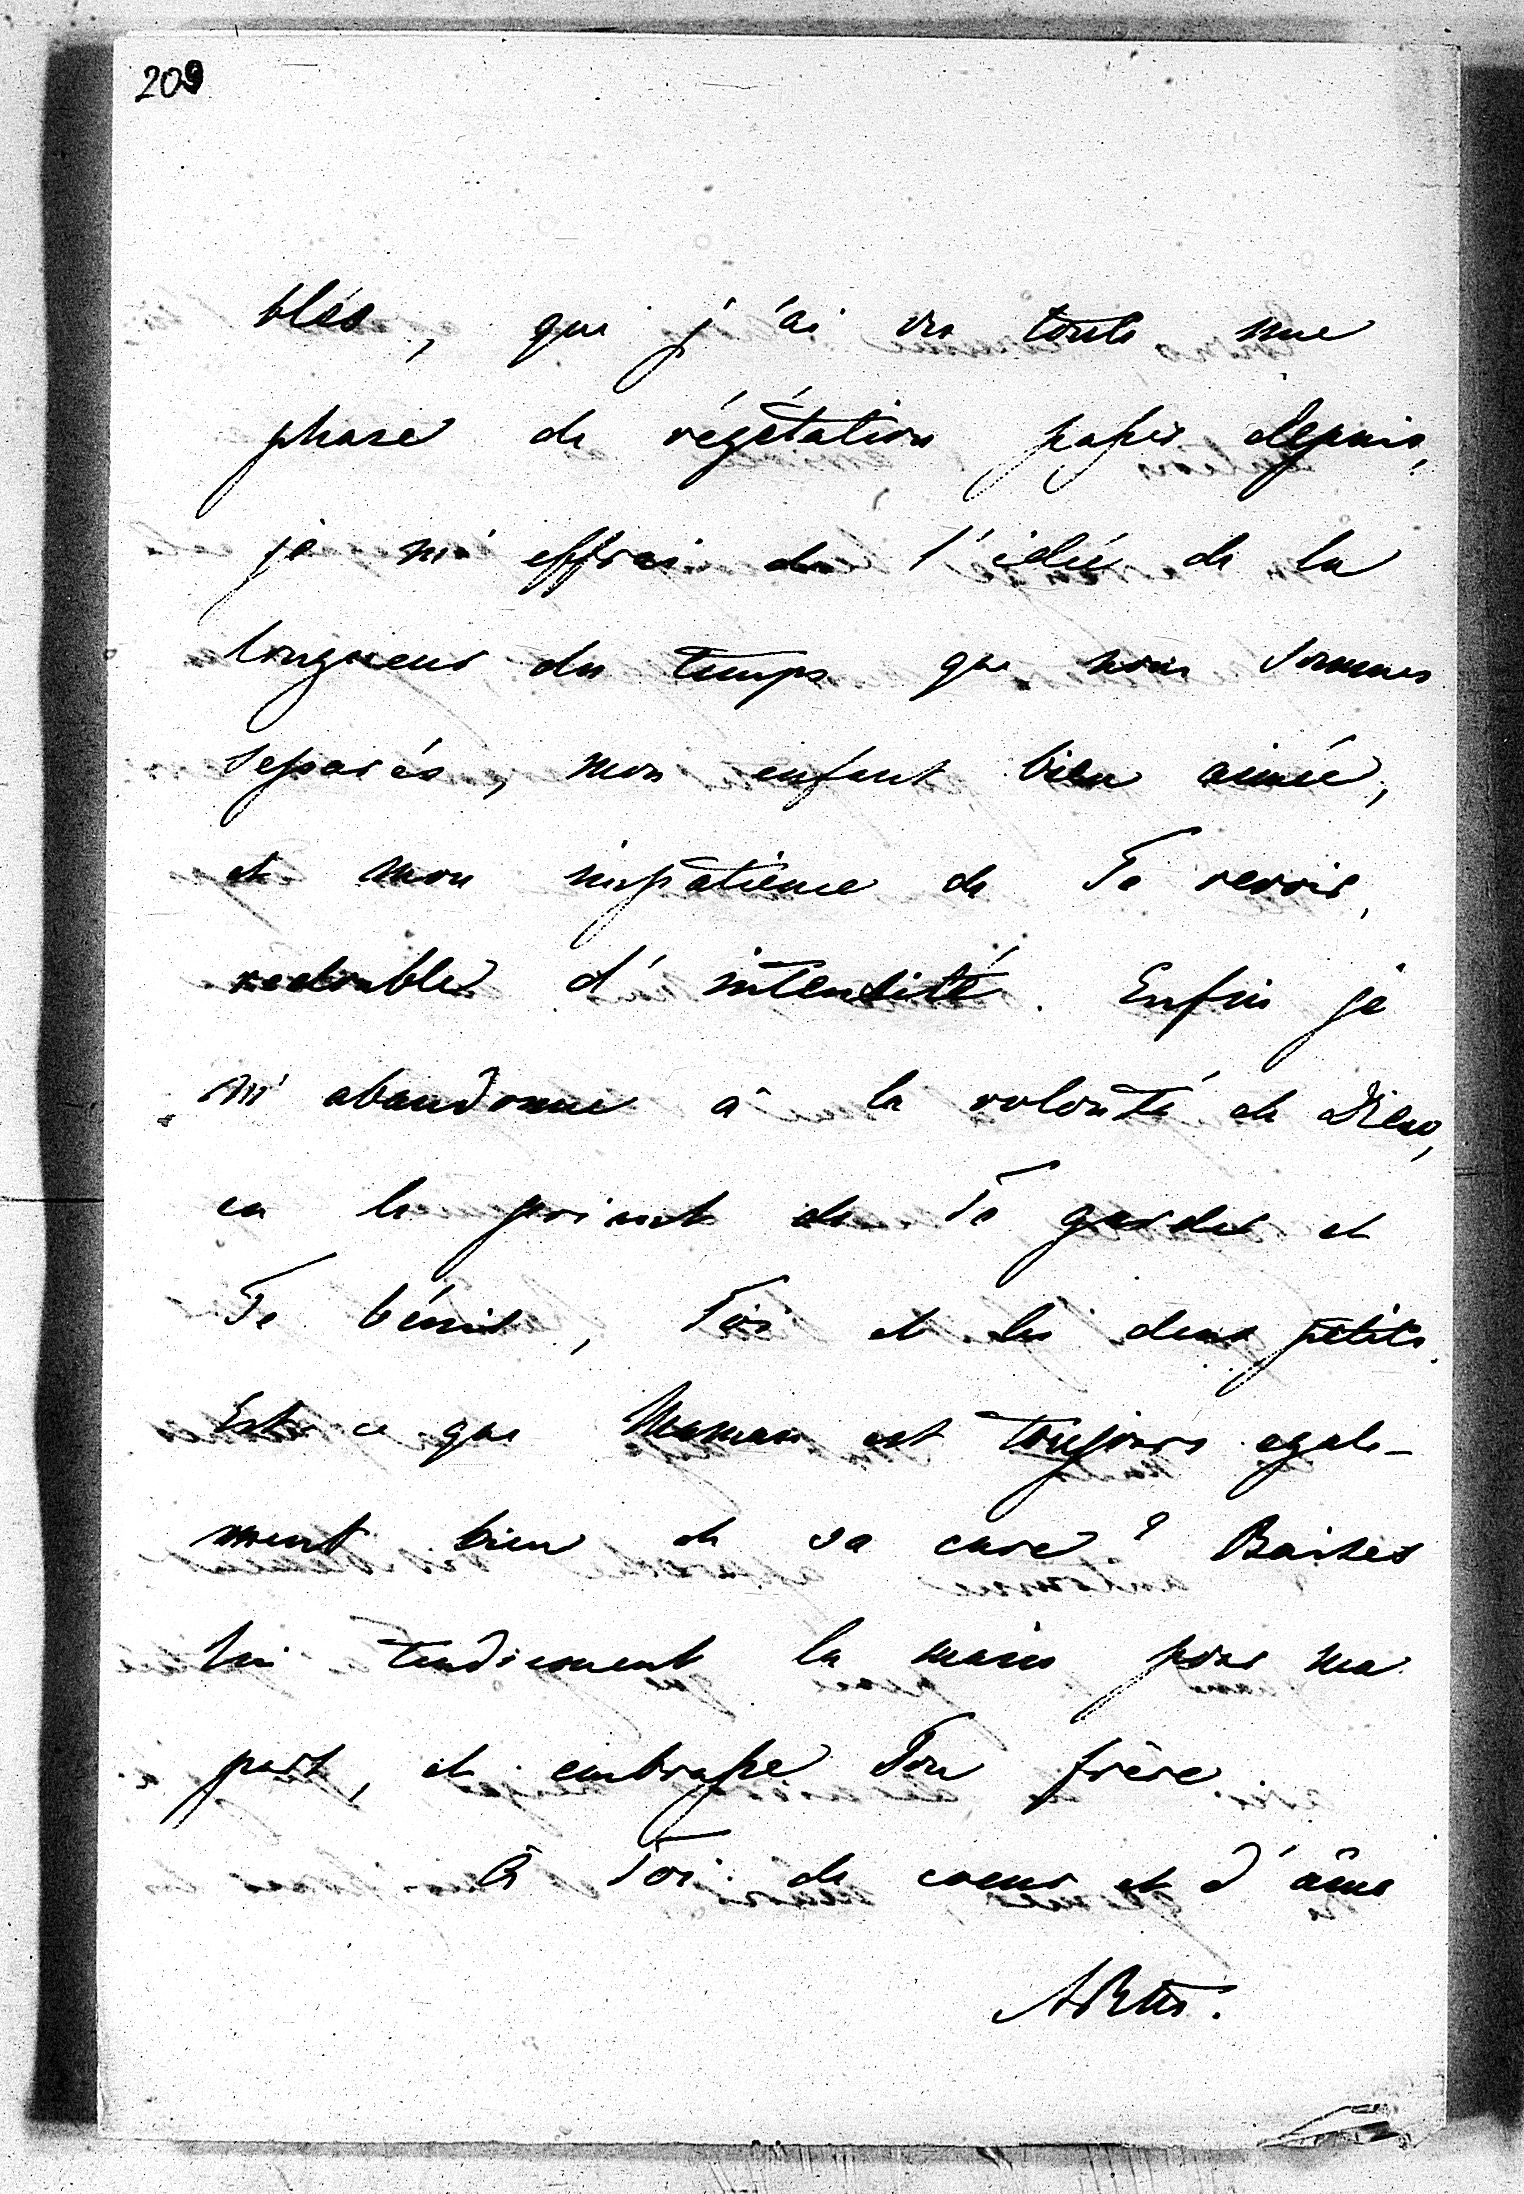 209
blés, que j'ai vu toute une
phase de végétation passer depuis,
je m'effraie de l'idée de la
longueur du temps que nous sommes
separés, mon enfant bien aimée,
et mon impatience de Te revoir,
redouble d'intensité. Enfin je
m'abandonne à la volonté de Dieu,
en le priant de Te garder et
Te bénir, Toi et les deux petits.
Est-ce que Maman est toujours egale-
ment bien de sa cure? Baises
lui tendrement la main pour ma
part, et embrasse Ton frère.
à Toi de coeur et d'âme